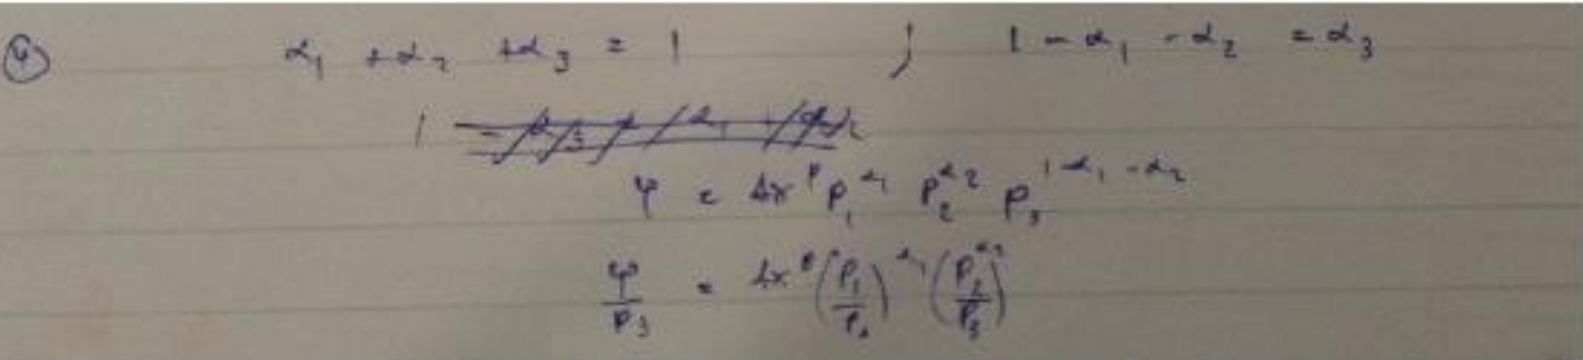 ④ α₁ + α₂ + α₃ = 1 ; 1 - α₁ - α₂ = α₃
φ = Ax^β P₁^α₁ P₂^α₂ P₃^(1-α₁-α₂)
φ/P₃ = Ax^β (P₁/P₃)^α₁ (P₂/P₃)^α₂